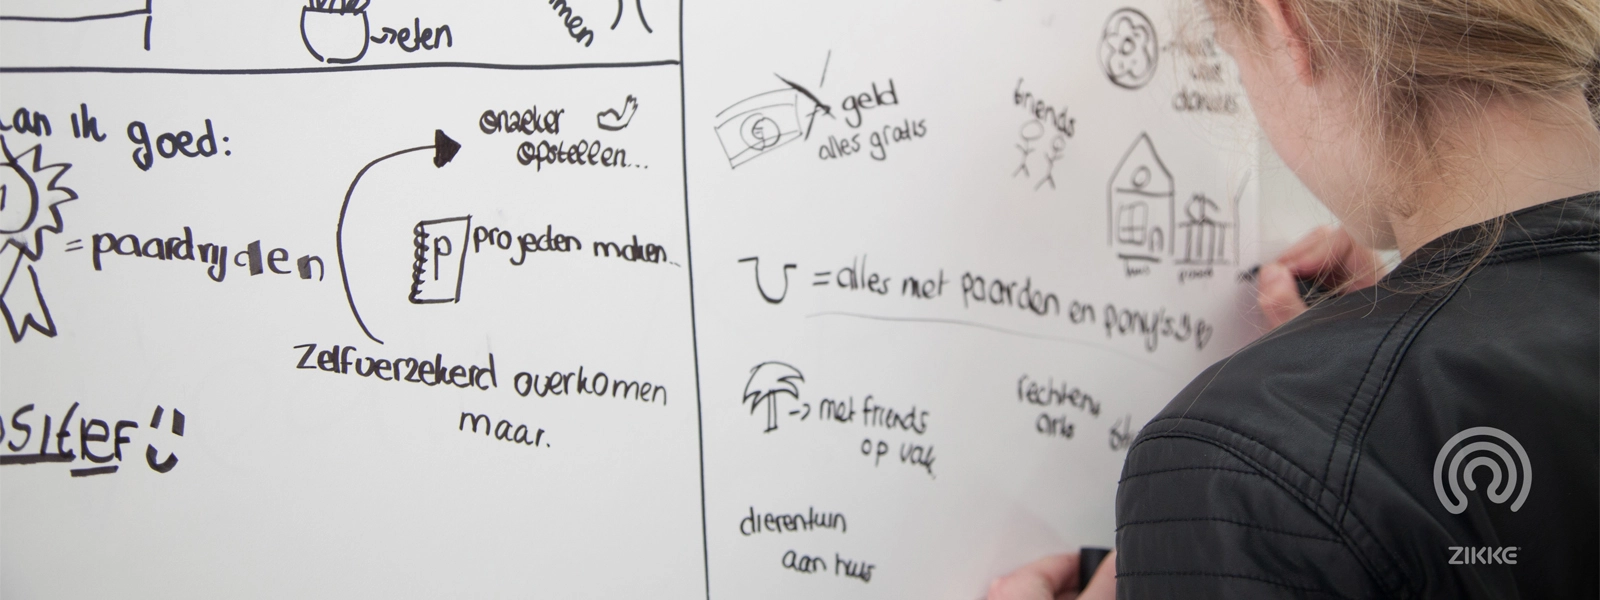 eten
men
kan ik goed:
= paardrijden
onzeker
opstellen...
P
projecten maken...
Zelfverzekerd overkomen
maar.
positief
€
geld
alles gratis
friends
donuts
huis
paard
= alles met paarden en pony's
met friends
op vak.
rechten
arts
dierentuin
aan huis
ZIKKE